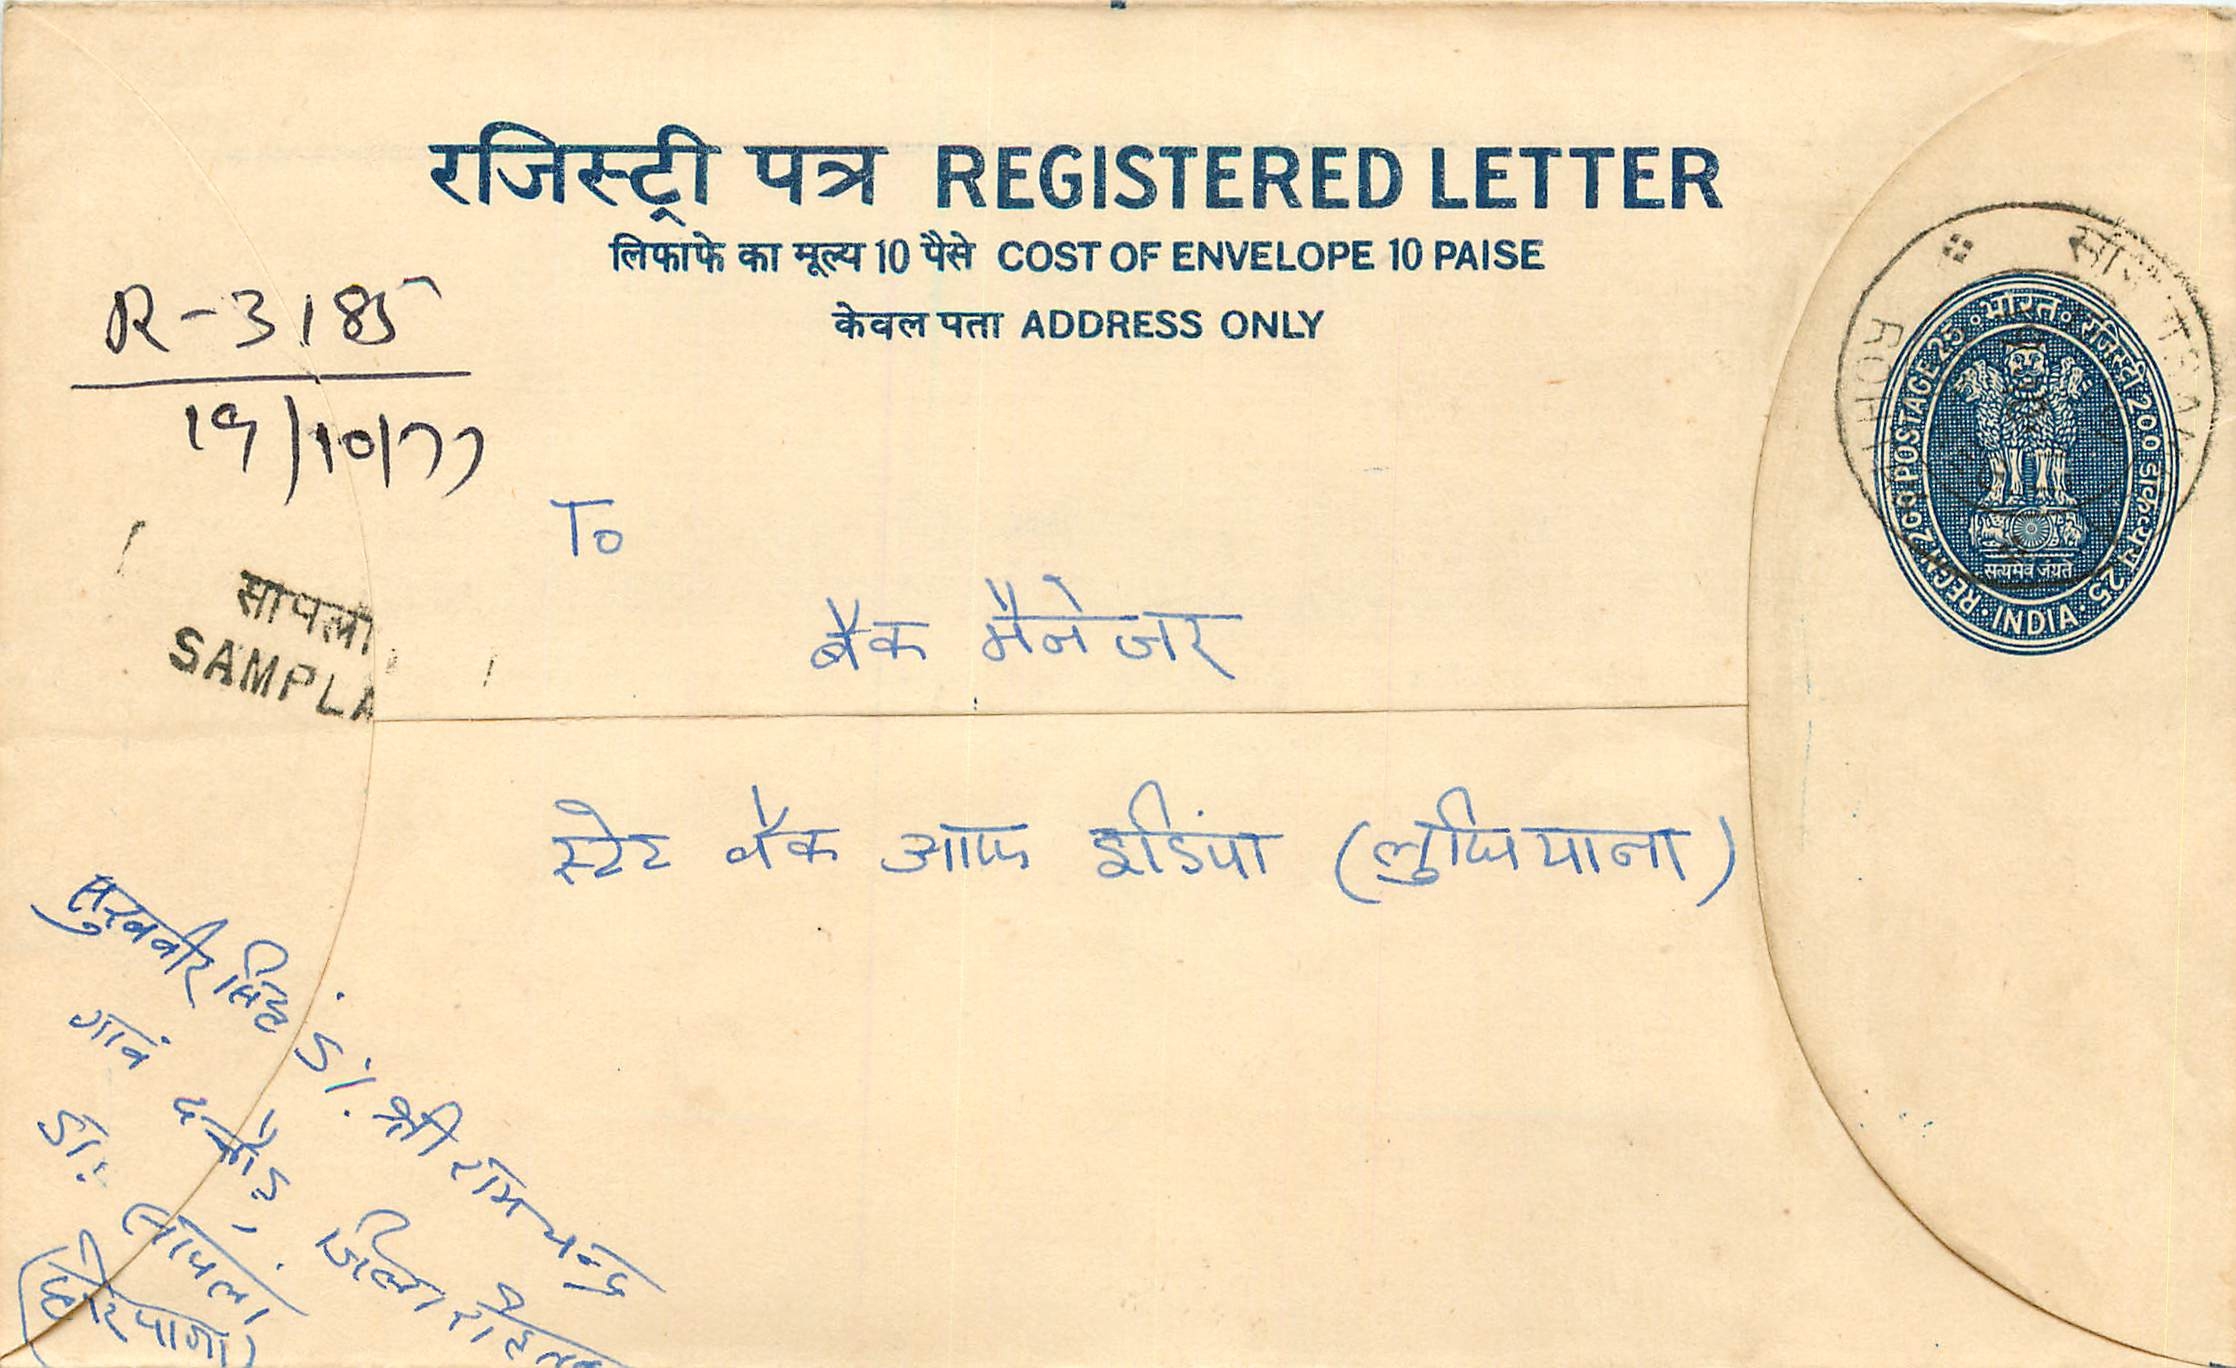 रजिस्ट्री पत्र REGISTERED LETTER
लिफाफे का मूल्य 10 पैसे COST OF ENVELOPE 10 PAISE
केवल पता ADDRESS ONLY
R-3185
19/10/77
भारत रजिस्ट्री 200 डाकद्रव्य 25
REGN. 200 POSTAGE 25
INDIA
सत्यमेव जयते
To
सापला
SAMPLA
बैंक मैनेजर
स्टेट बैंक आफ इडिंया (लुधियाना)
सुखवीर सिंह S/. श्री रामचन्द्र
गावं जिला रोहतक
डा: सापला
(हरियाणा)